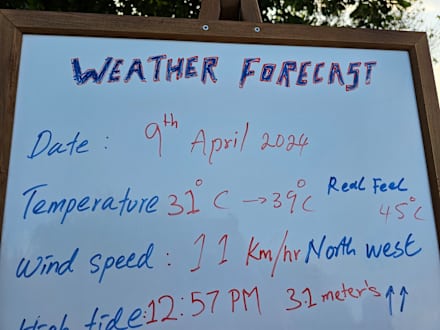 WEATHER FORECAST
Date : 9th April 2024
Temperature 31°C → 39°C Real Feel 45°C
Wind speed : 11 Km/hr North west
High tide: 12:57 PM 3.1 meter's ↑↑